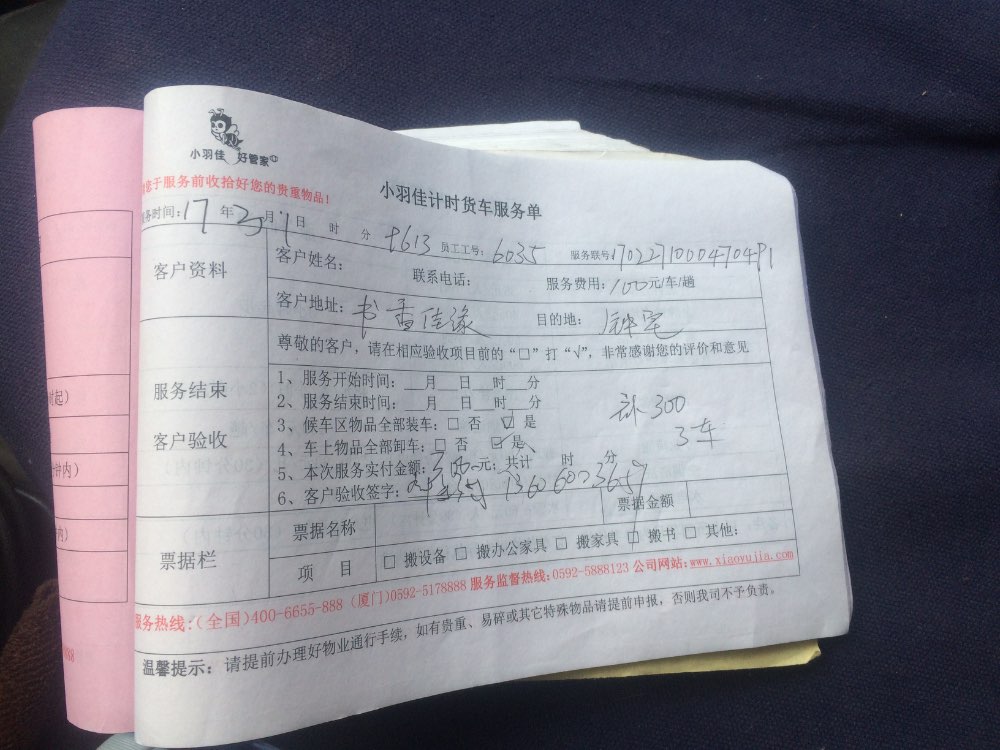 小羽佳 好管家
您于服务前收拾好您的贵重物品！
小羽佳计时货车服务单
务时间：17年3月1日 时 分 员工工号：6035 服务联号
客户资料
客户姓名： 联系电话： 服务费用：100元/车/趟
客户地址：书香佳缘 目的地：钟宅
尊敬的客户，请在相应验收项目前的“□”打“√”，非常感谢您的评价和意见
服务结束
客户验收
1、服务开始时间：__月__日__时__分
2、服务结束时间：__月__日__时__分
3、候车区物品全部装车：□ 否 ☑ 是
4、车上物品全部卸车：□ 否 ☑ 是
5、本次服务实付金额：300元；共计 时 分
6、客户验收签字： 13606023659
计300
3车
票据栏
票据名称 票据金额
项 目 □ 搬设备 □ 搬办公家具 □ 搬家具 □ 搬书 □ 其他：
服务热线：（全国）400-6655-888（厦门）0592-5178888 服务监督热线：0592-5888123 公司网站：www.xiaoyujia.com
温馨提示：请提前办理好物业通行手续，如有贵重、易碎或其它特殊物品请提前申报，否则我司不予负责。
时起）
钟内）
内）